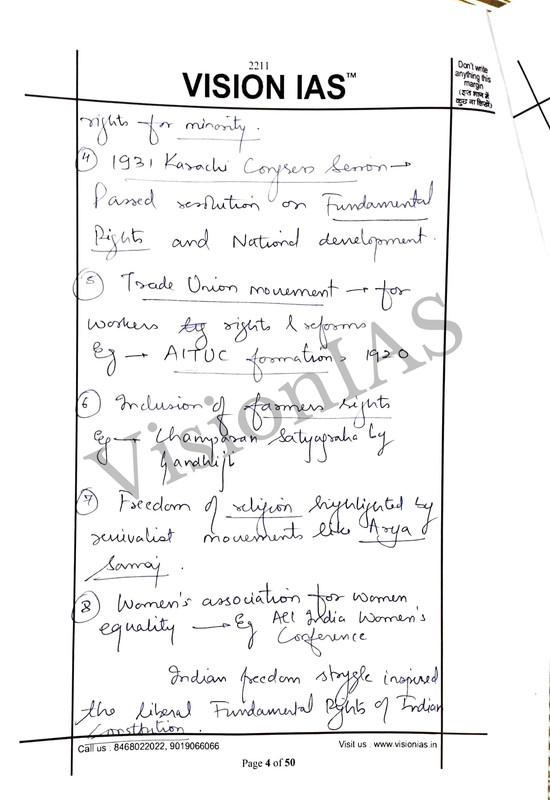 2211
VISION IAS™
Don't write
anything this
margin
(इस भाग में
कुछ ना लिखें)
rights for minority.
④ 1931 Karachi Congress Session →
Passed resolution on Fundamental
Rights and National development.
⑤ Trade Union movement → for
workers rights & reforms
Eg → AITUC formation, 1920
⑥ Inclusion of farmers rights
Eg → Champaran Satyagraha by
Gandhiji
⑦ Freedom of religion highlighted by
revivalist movements like Arya
Samaj.
⑧ Women's association for women
equality → Eg All India Women's
Conference
Indian freedom struggle inspired
the liberal Fundamental Rights of Indian
Constitution.
VisionIAS
Call us : 8468022022, 9019066066
Visit us : www.visionias.in
Page 4 of 50